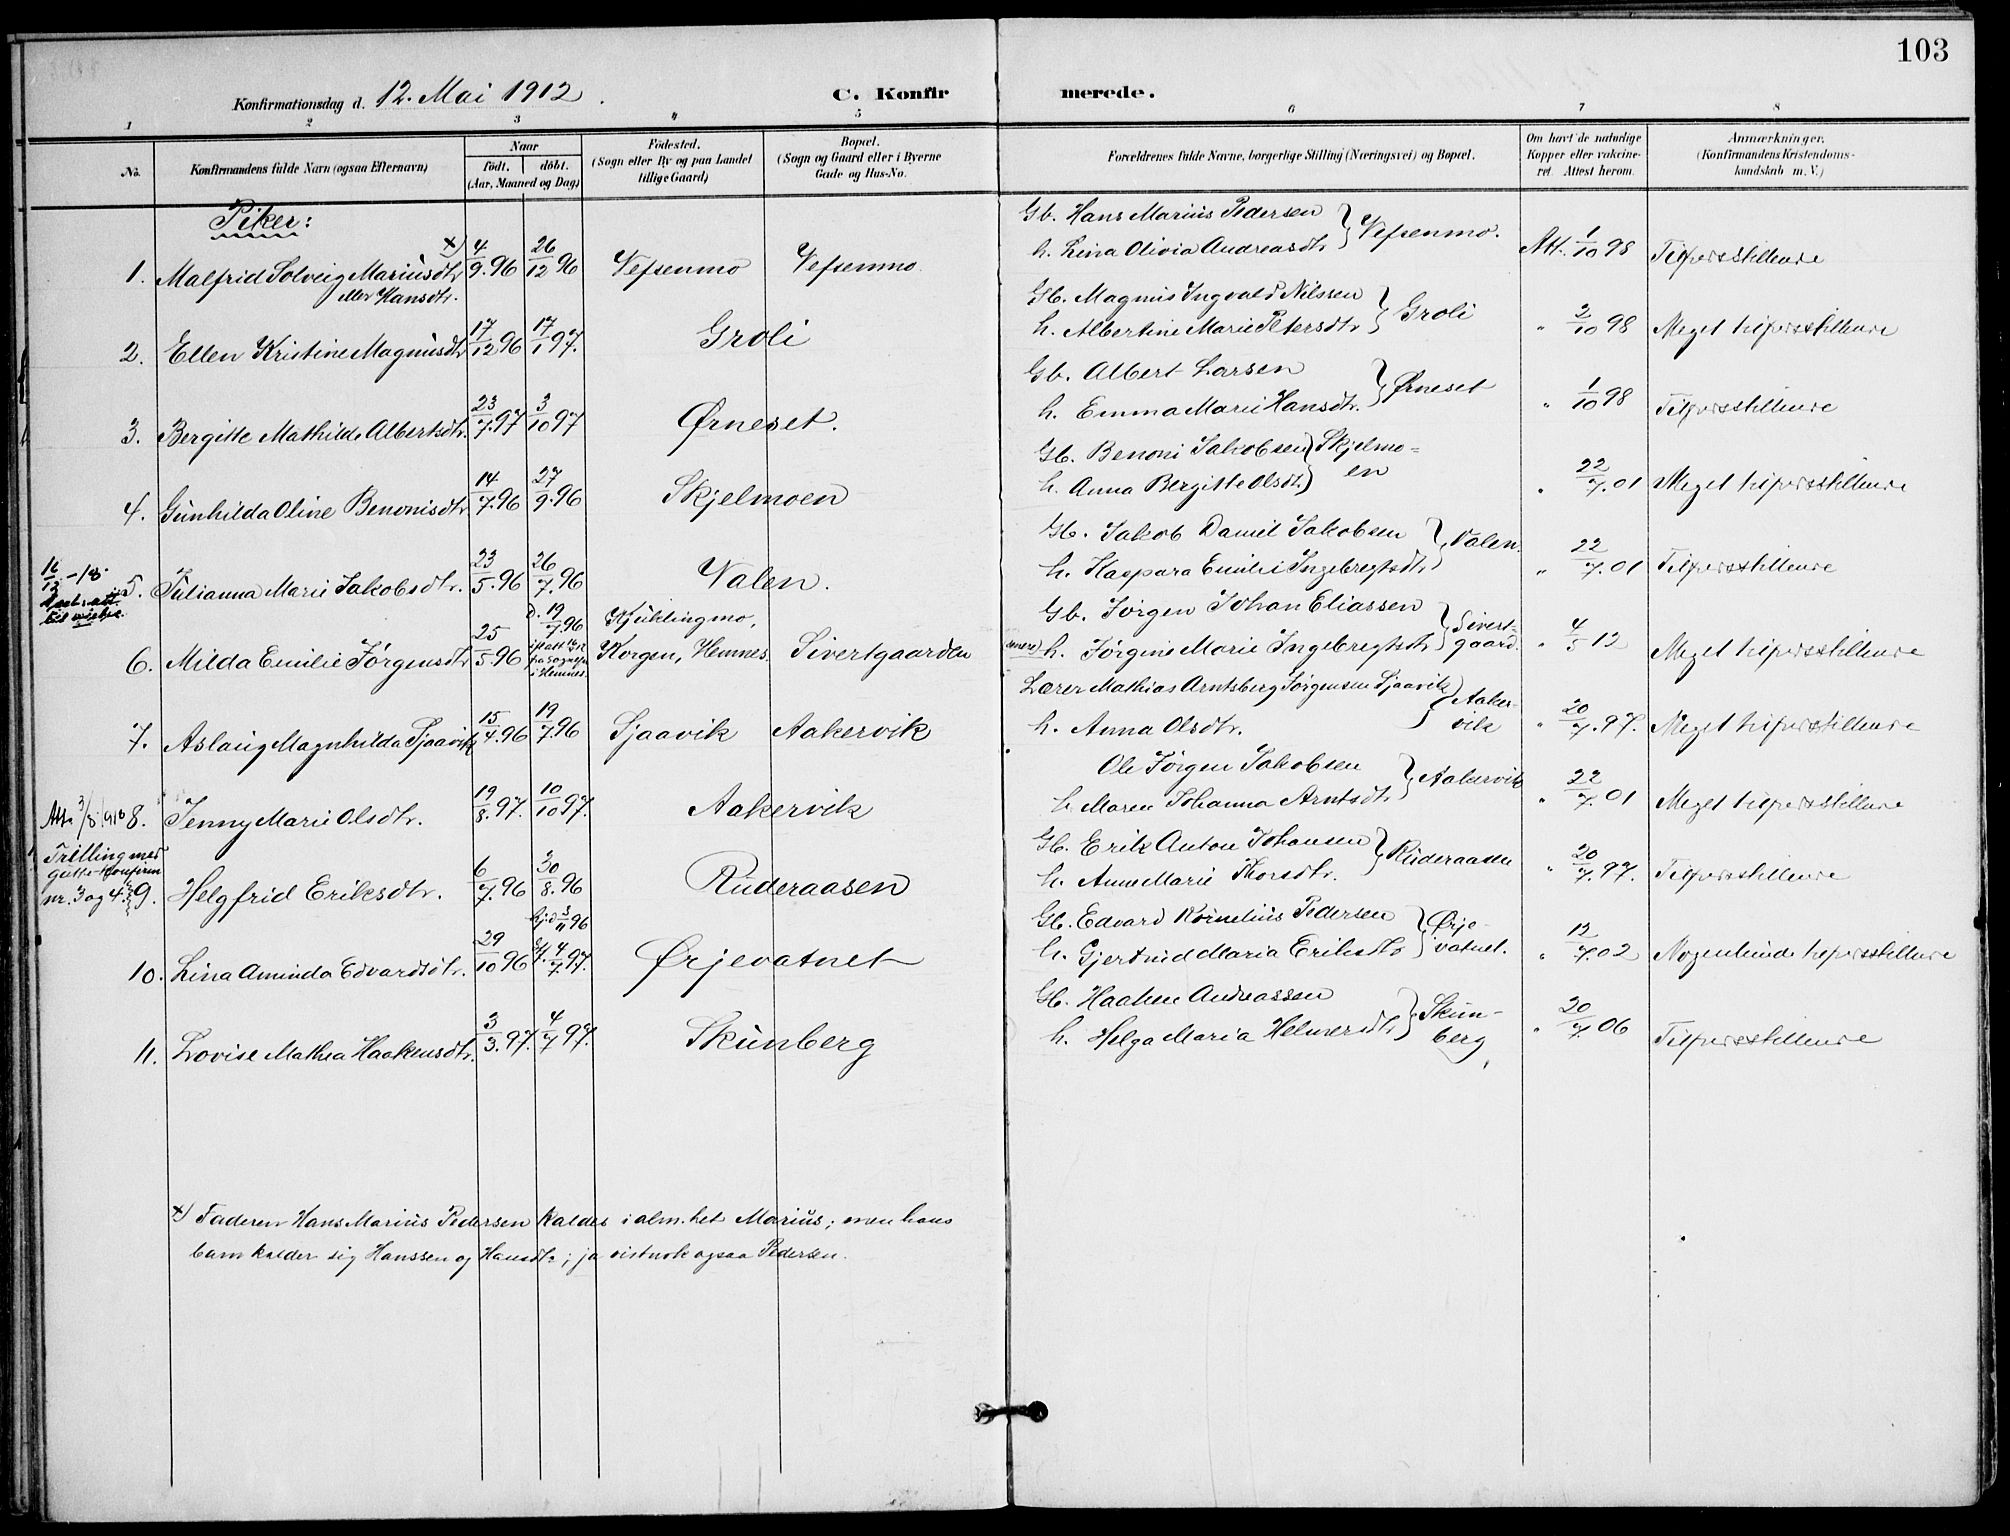 103
Konfirmationsdag d. 12. Mai 1912.
C. Konfirmerede.
1 2 3 4 5 6 7 8
No.
Konfirmandens fulde Navn (ogsaa Efternavn)
Naar
født. døbt.
(Aar, Maaned og Dag)
Fødested.
(Sogn eller By og paa Landet
tillige Gaard)
Bopæl.
(Sogn og Gaard eller i Byerne
Gade og Hus-No.
Forældrenes fulde Navne, borgerlige Stilling (Næringsvei) og Bopæl.
Om havt de naturlige
Kopper eller vakcine-
ret. Attest herom.
Anmærkninger.
(Konfirmandens Kristendoms-
kundskab m. V.)
Piker:
1. Malfrid Solveig Mariusdtr x) 4/9.96 26/12 96 Vefsenmo Vefsenmo Gb. Hans Marius Pedersen
eller Hansdtr. h. Lina Olivia Andreasdtr } Vefsenmo. Att. 1/10 98 Tilfredsstillende
2. Ellen Kristine Magnusdtr 17/12 96 17/1 97. Groli Gb. Magnus Ingvald Nilssen
h. Albertine Marie Petersdtr } Groli " 2/10 98 Meget tilfredsstillende
3. Bergitte Mathilde Albertsdtr. 23/7.97 3/10 97 Ørneset. Gb. Albert Larsen
h. Emma Marie Hansdtr. } Ørneset " 1/10 98 Tilfredsstillende
4. Gunhilda Oline Benonisdtr 14/7.96 27/9.96 Skjelmoen Gb. Benoni Jakobsen } Skjelmo=
h. Anna Bergitte Olsdtr. } en " 22/7.01 Meget tilfredsstillende
16/12 -18.
5. Julianna Marie Jakobsdtr. 23/5.96 26/7.96 Valen. Gb. Jakob Daniel Jakobsen
h. Kaspara Emilie Ingebregtsdtr } Valen. " 22/7.01 Tilfredsstillende
6. Milda Emilie Jørgensdtr 25/5.96 D. 19/7 96 Kjuklingmo,
Korgen, Hemnes. Sivertgaarden Gb. Jørgen Johan Eliassen
i Hemnes. h. Jørgine Marie Ingebregtsdtr } Sivert-
gaard. " 4/5 12 Meget tilfredsstillende
7. Aslaug Magnhilda Sjaavik 15/4.96 19/7.96 Sjaavik Aakervik Lærer Mathias Arntsberg Jørgensen Sjaavik
h. Anna Olsdtr. } Aaker-
vik " 20/7.97. Meget tilfredsstillende
Att. 3/8 1918
8. Jenny Marie Olsdtr. 19/8.97. 10/10 97. Aakervik Ole Jørgen Jakobsen
h Maren Johanna Arntsdtr } Aakervik " 22/7.01 Meget tilfredsstillende
Trilling med
gutte-konfirm
nr. 3 og 4.
9. Helgfrid Eriksdtr. 6/7.96 30/8.96 Ruderaasen Gb. Erik Anton Johansen
h. Anne Marie Thorsdtr. } Ruderaasen " 20/7.97. Tilfredsstillende
10. Lina Aminda Edvardsdtr. 29/10 96 hjd 3/11 96
4/7 97. Ørjevatnet Gb. Edvard Kornelius Pedersen
h. Gjertrud Maria Eriksdtr } Ørje-
vatnet. " 12/7.02 Nogenlunde tilfredsstillende
11. Lovise Mathea Haakensdtr. 3/3.97. 4/7 97. Skunberg Gb. Haaken Andreassen
h. Helga Maria Helmersdtr } Skun-
berg " 20/7.06 Tilfredsstillende
x) Faderen Hans Marius Pedersen kaldes i alm.het Marius; men hans
barn kalder sig Hanssen og Hansdtr; ja vistnok ogsaa Pedersen.